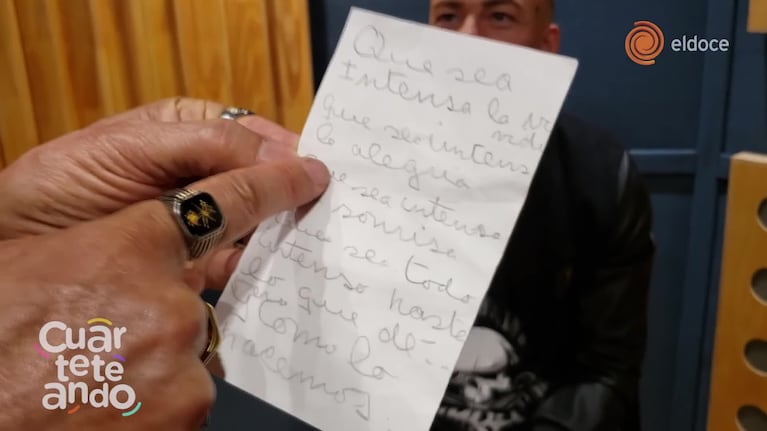 eldoce
Que sea
Intensa la
que sea intens
la alegria
que sea intensa
sonrisa
que sea todo
intenso hasta
lo que
como lo
hacemos
Cuar
tete
ando